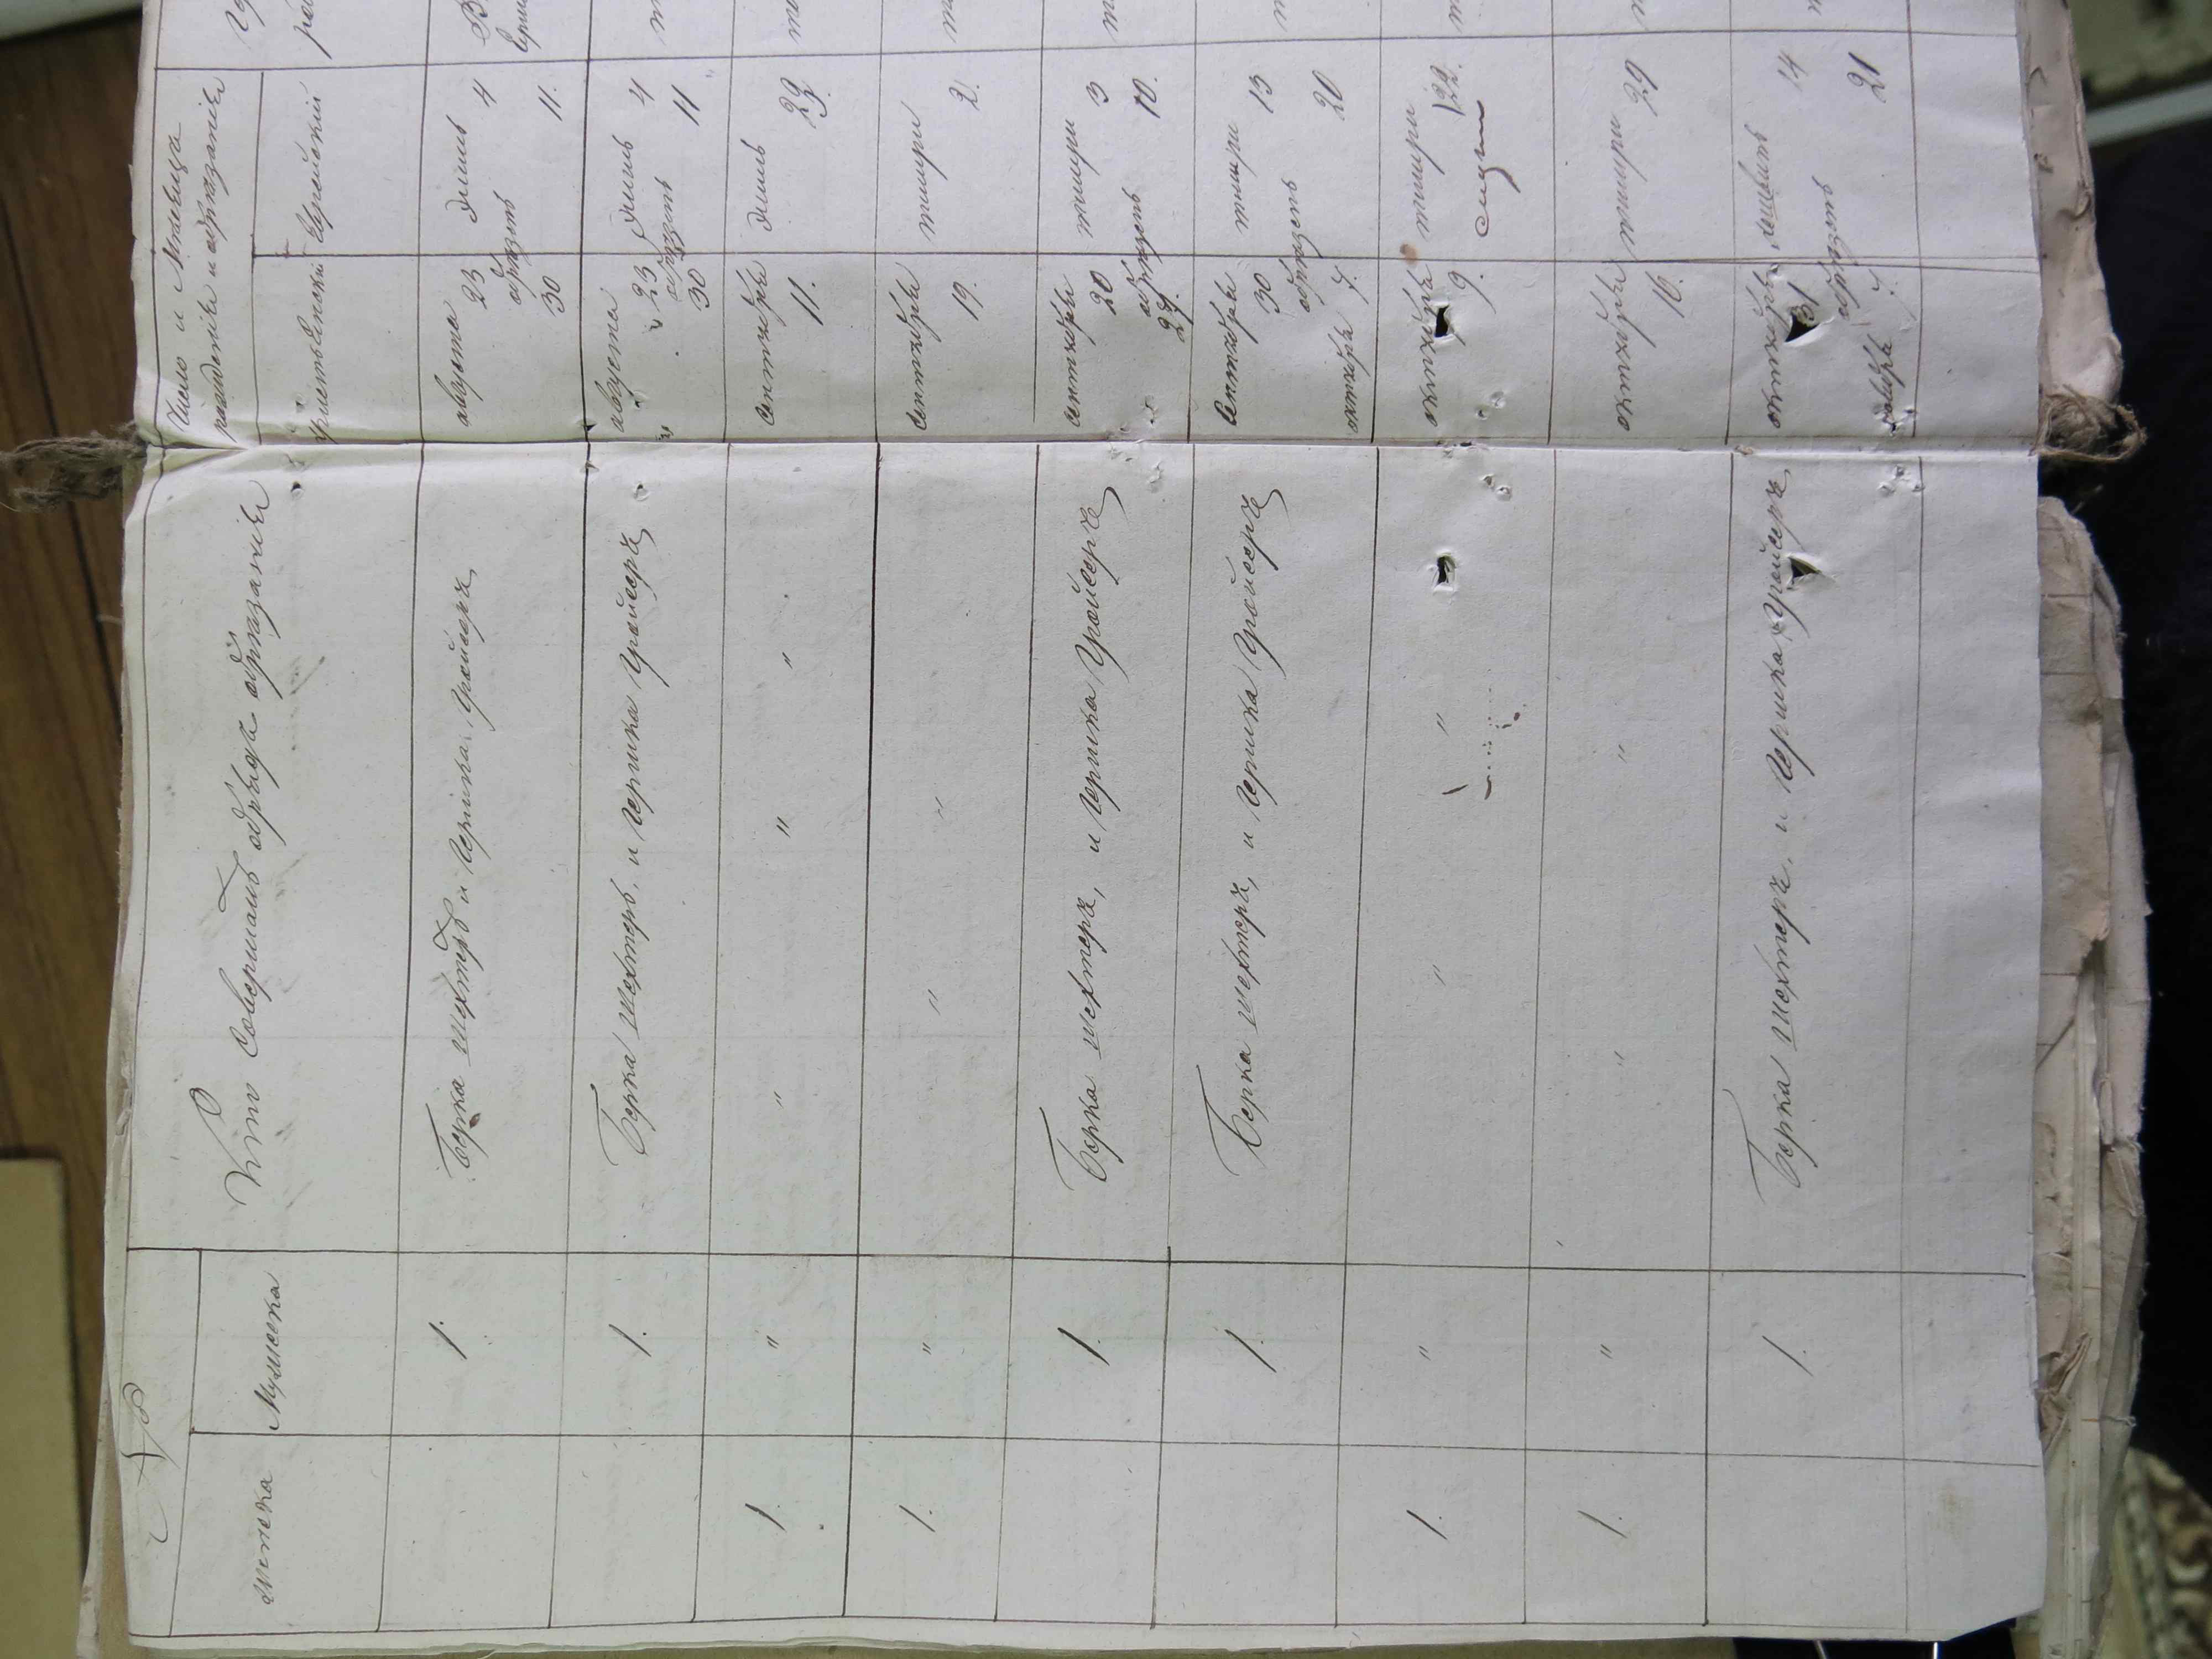 №
женска
Мужеска
Кто Совершалъ обрядъ обрезанія
Число и Месяца
рожденія и обрезанія
христьянскій
Еврейскій
1.
Берка шехтеръ и Гершка Гройсеръ
августа
23
обрезанъ
30
элилъ
4
11.
1.
Берка шехтеръ, и Гершка Гройсеръ
августа
23
обрезанъ
30
элилъ
4
11
1.
" " " "
сентября
11.
элилъ
29.
1.
" " "
сентября
19.
тишри
2.
1.
Берка шехтеръ, и Гершка Гройсеръ
сентября
20
обрезанъ
27.
тишри
3
10.
1.
Берка шехтеръ, и Гершка Гройсеръ
сентября
30
обрезанъ
октября 7.
тишри
13
20
1.
" " "
октября
9.
тишри
22.
1.
" " "
октября
16.
тишри
29
1.
Берка шехтеръ, и Гершка Гройсеръ
октября
31
обрезанъ
ноября 7.
14
21